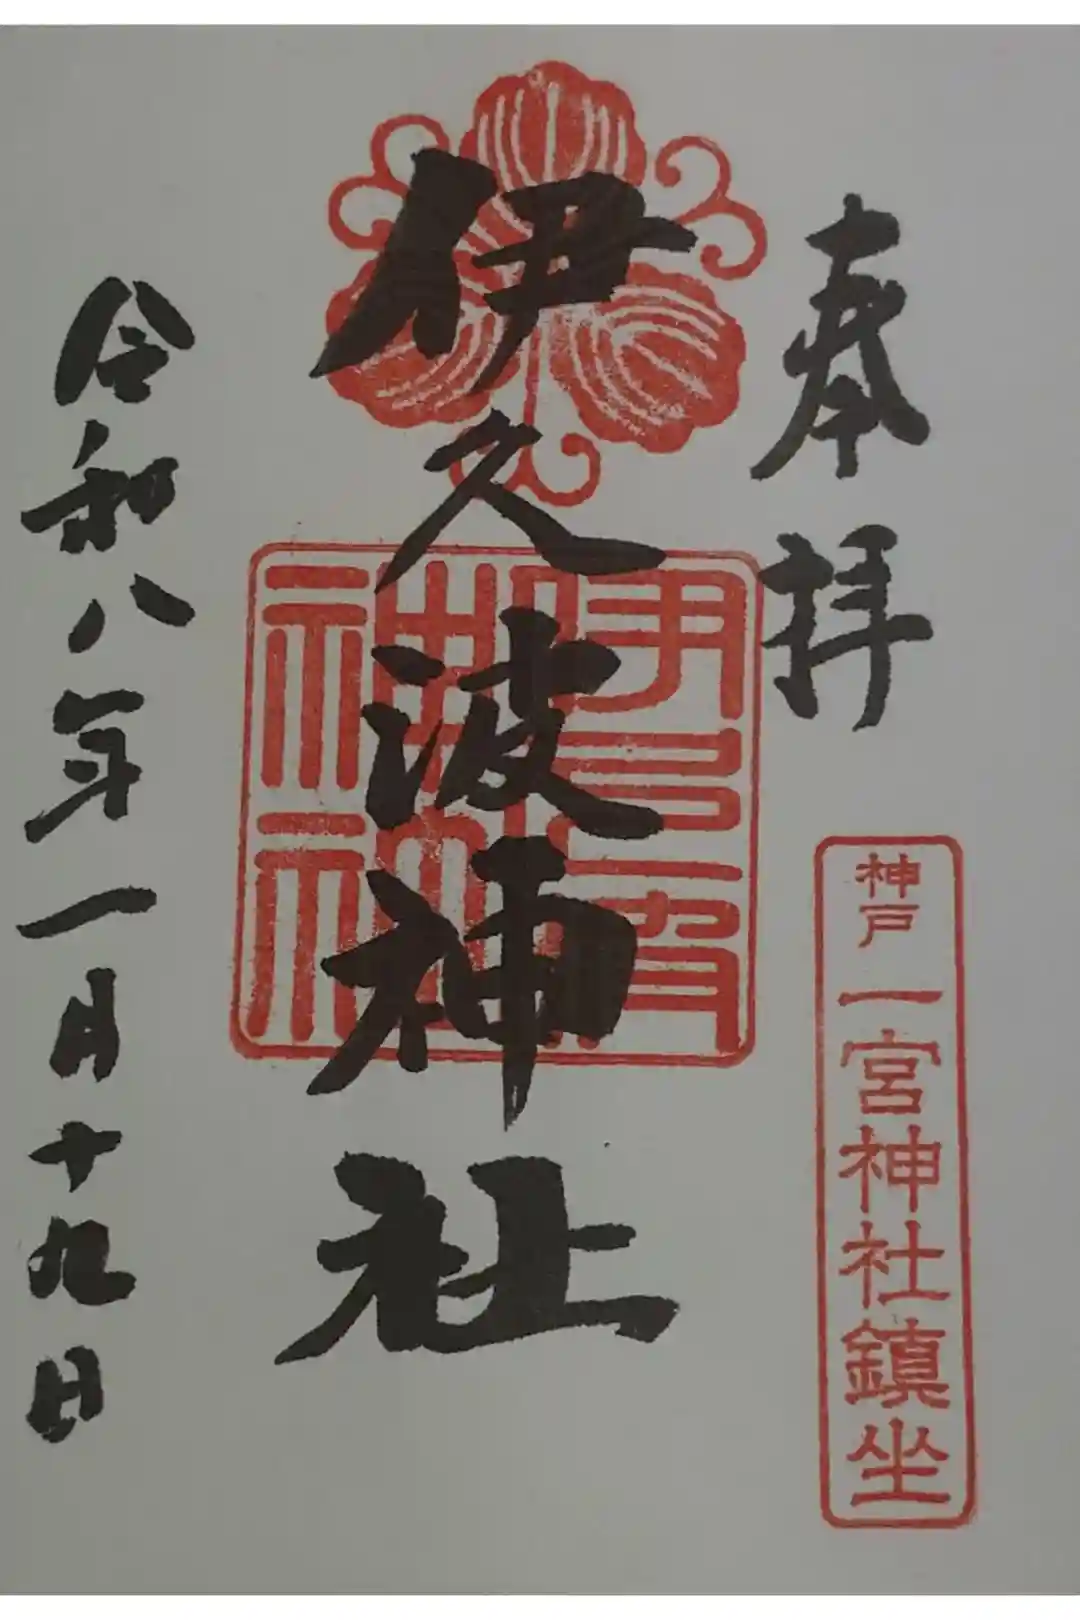 奉拝
神戸
一宮神社鎮坐
伊久波神社
令和八年一月十九日